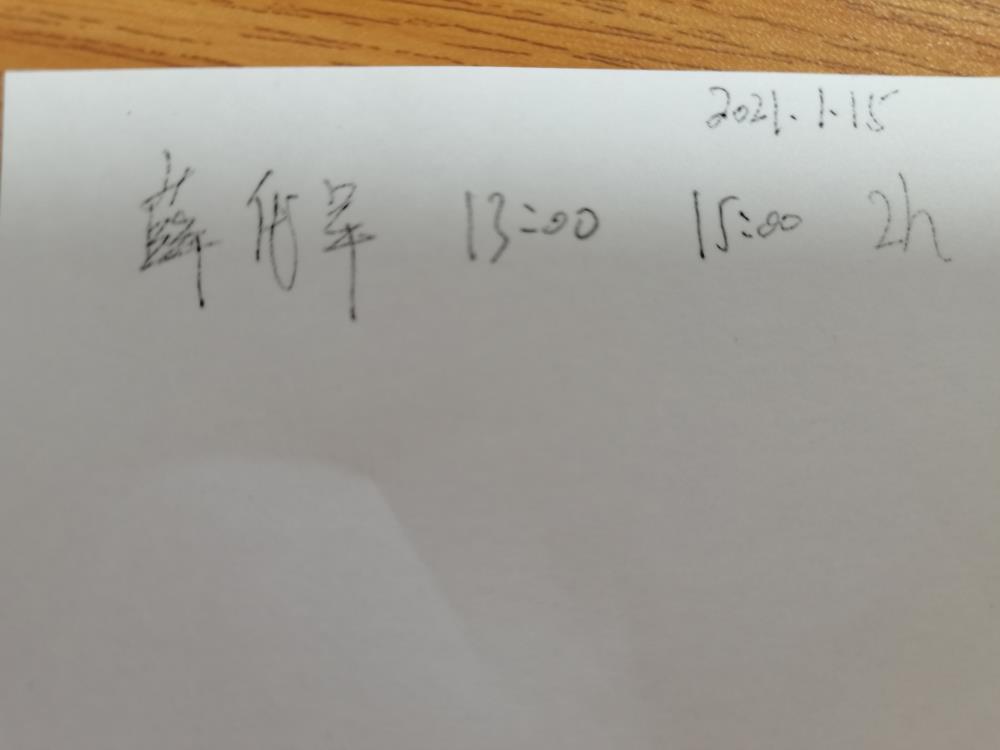 2021.1.15
薛 13:00 15:00 2h